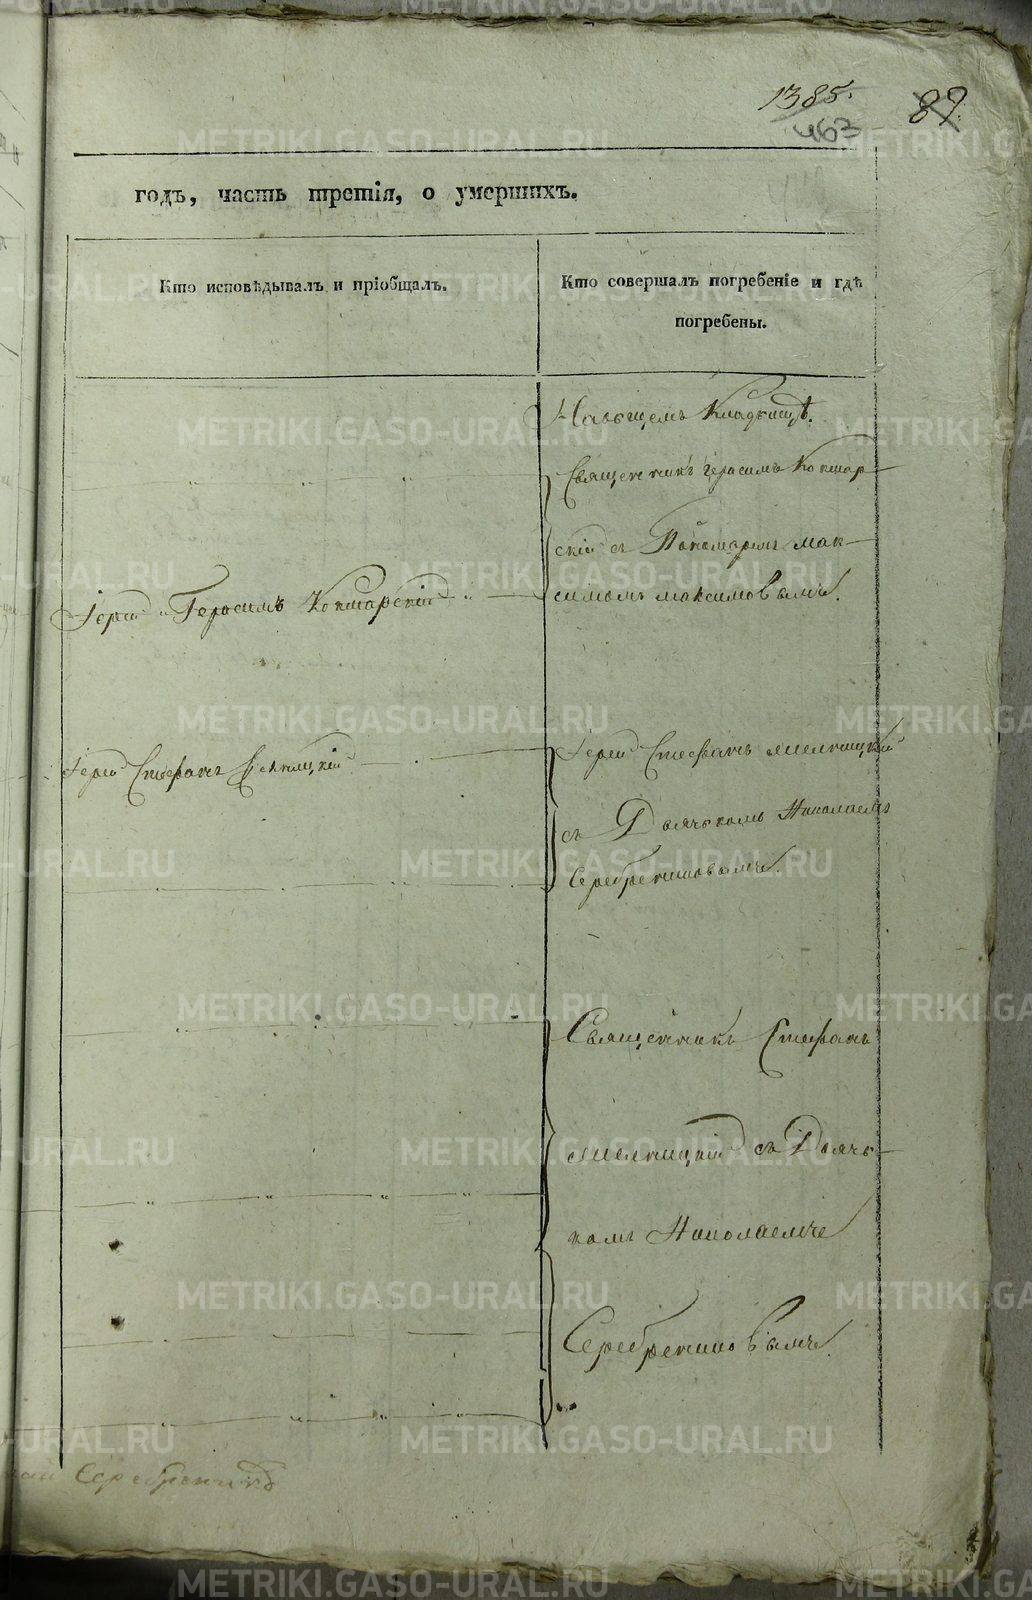 1385.
463
89.
годъ, часть третія, о умершихъ.
Кто исповѣдывалъ и пріобщалъ.
Кто совершалъ погребеніе и гдѣ
погребены.
На общемъ Кладбищѣ.
Священникъ Герасимъ Кокшар
скій съ Пономаремъ мак
симомъ максимовымъ.
Іерей Герасимъ Кокшарскій
Іерей Стефанъ мелницкій
съ Дьячькомъ Николаемъ
Серебрениковымъ.
Іерей Стефанъ
Священникъ Стефанъ
мелницкій съ Дьячь
комъ Николаемъ
Серебрениковымъ.
Серебрениковъ
METRIKI.GASO-URAL.RU